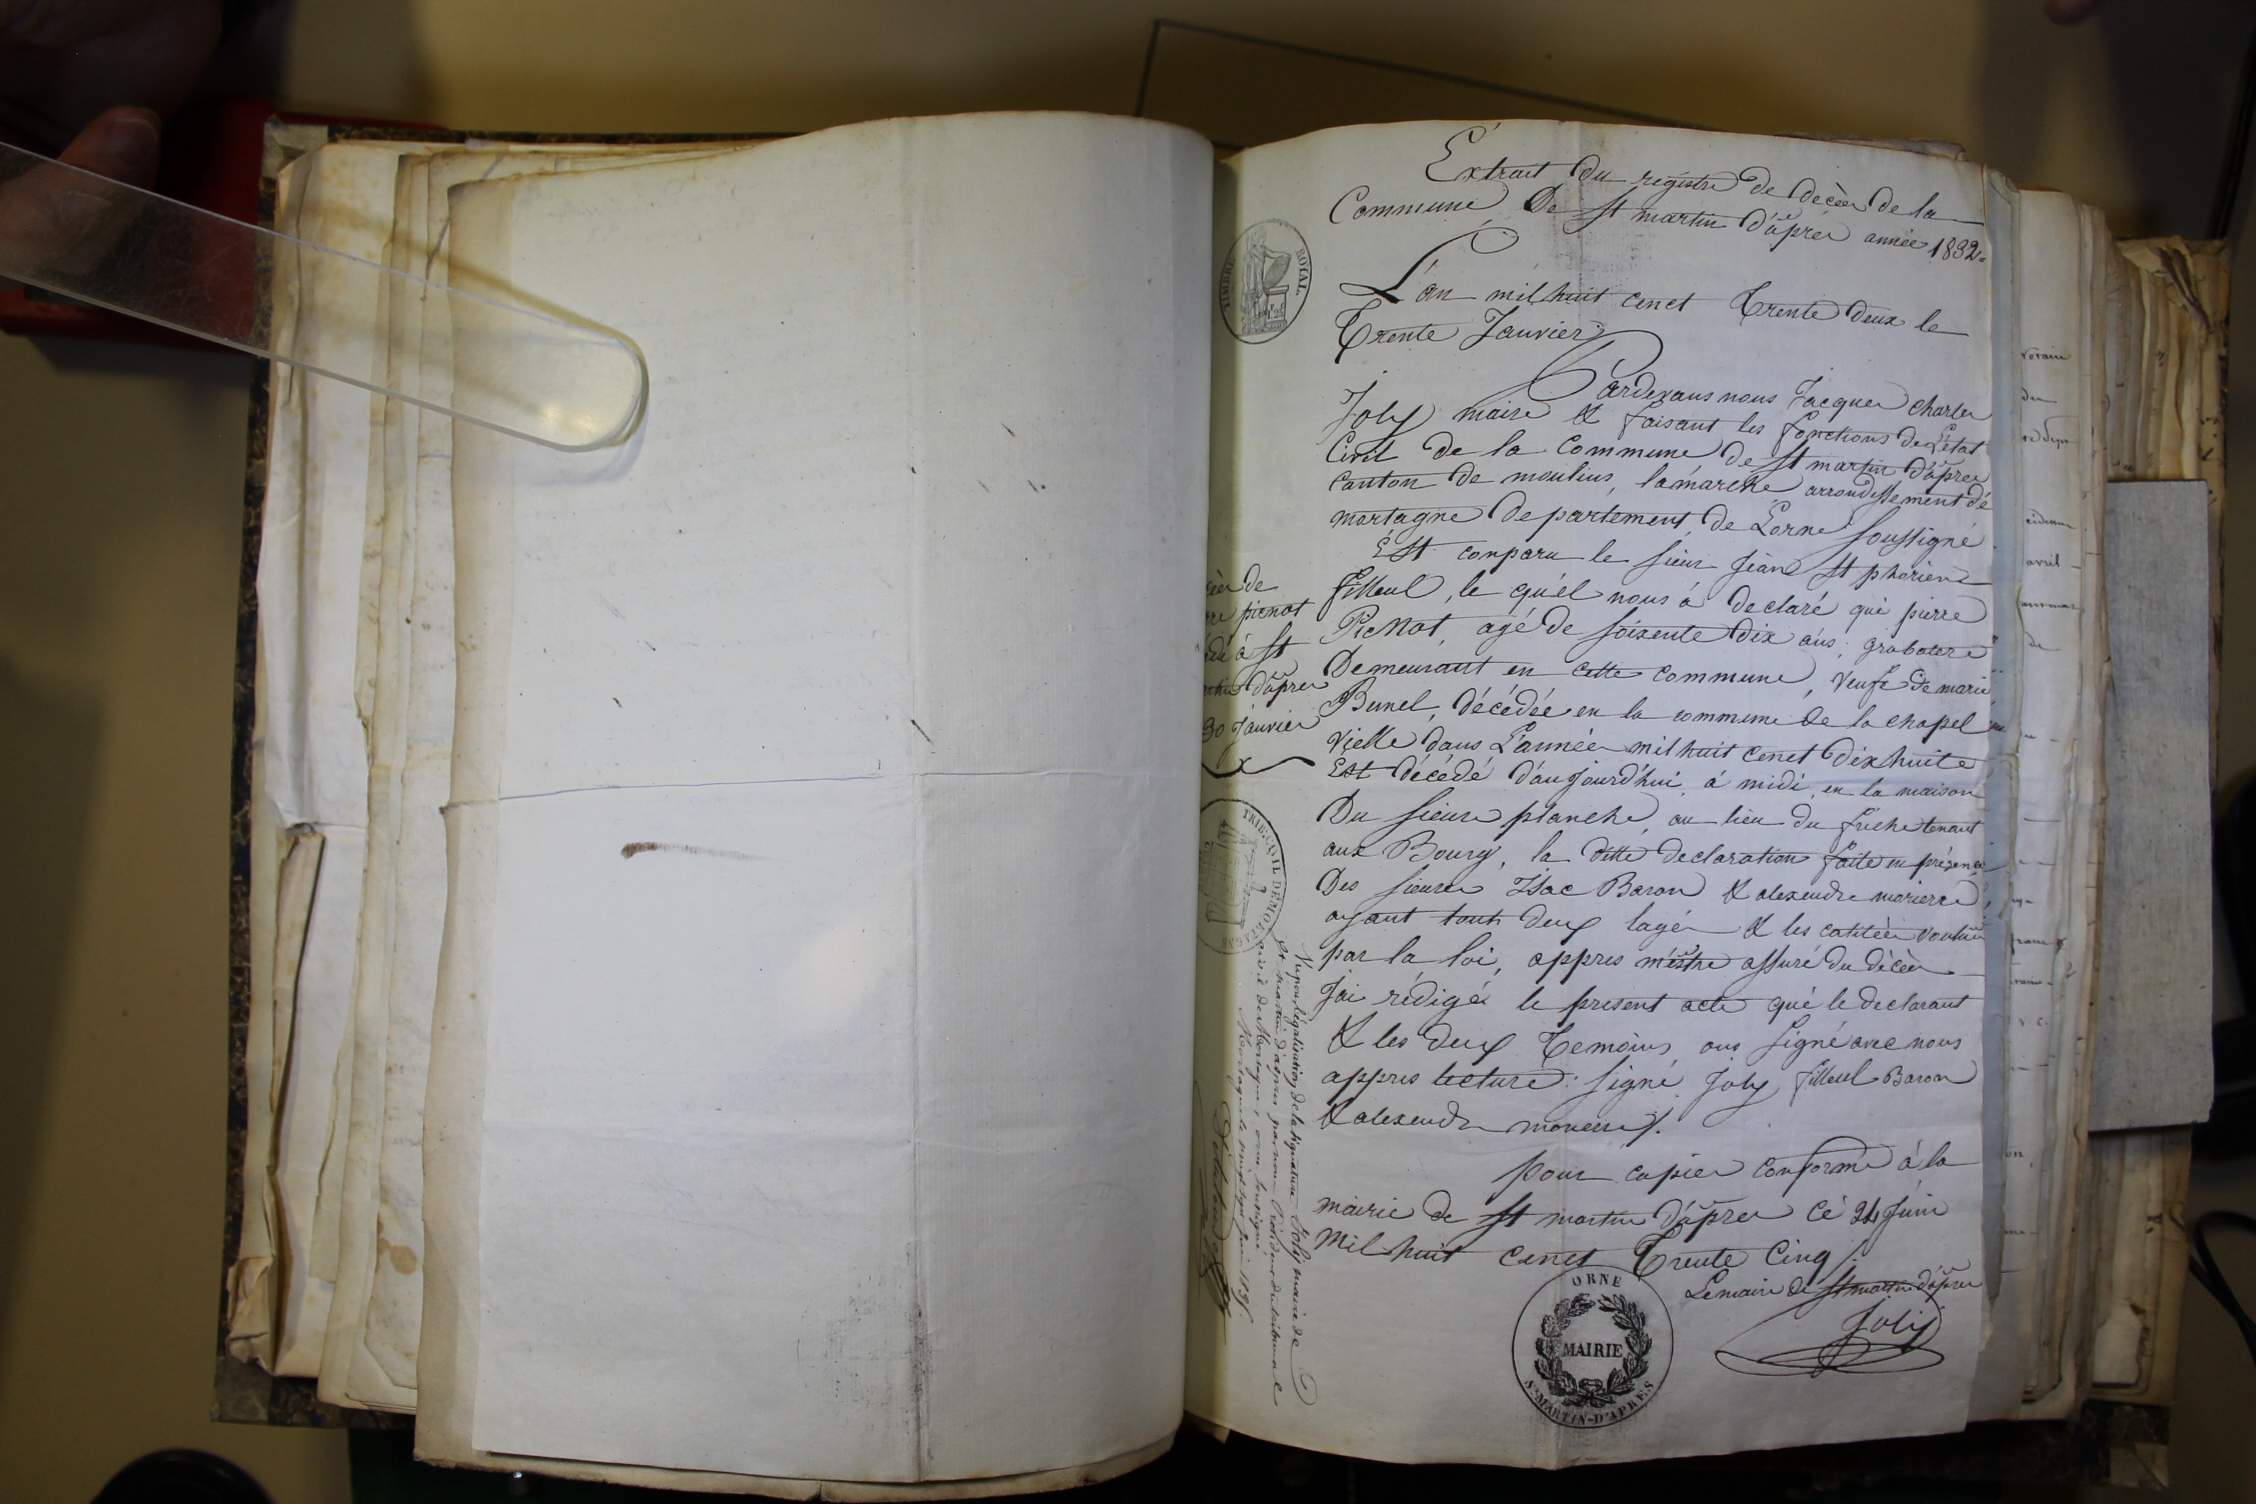 Extrait du registre de décès de la
Commune De St martin D'âprès année 1832.
L'án mil huit cenct Trente deux le
Trente Janvier
Pardevans nous Jacques Charles
Joly maire & faisant les fonctions de L'état
Civil de la Commune de St martin D'âpres
canton de moulins, lamarche arrondissement dé
mortagne Departement de Lorne Soussigné
Est conparu le Sieur Jéan St phorien
Filleul, le quél nous á declaré qué pierre
Picnot, agé de soixente dix áns,
Demeurant en cette commune, veufe De marie
Bunel, décédée en la commune de la chapel
vielle dans L'année mil huit cenct dix huite
Est décédé d'aujourd'hui, á midi, en la maison
Du Sieure planche, au lieu du friche tenant
aux Bourg, la ditte declaration faite en présence
Des Sieures Isac Baron & alexendre
ayant touts deux lagé & les calitées voulues
par la loi, appres m'éstre assuré du décès
Jai rédigé le present acte qué le declarant
& les deux Temoins ons Signé avec nous
appres lecture: Signé Joly Filleul Baron
& alexendre
pour copier conforme á la
mairie de St martin D'âpres cé 24 Juin
mil huit cenct Trente Cinq
Lemaire de St martin d'âpres
Joly
TIMBRE ROYAL
de
picnot
á St
D'âpres
30 Janvier
TRIB. CIVIL DE MORTAGNE
Vu pour légalisation de la signature Joly maire de
St martin d'apres par nous Président du tribunal
civil de Mortagne, soussigné
Mortagne le Juin 1835.
ORNE
MAIRIE
St MARTIN-D'APRES